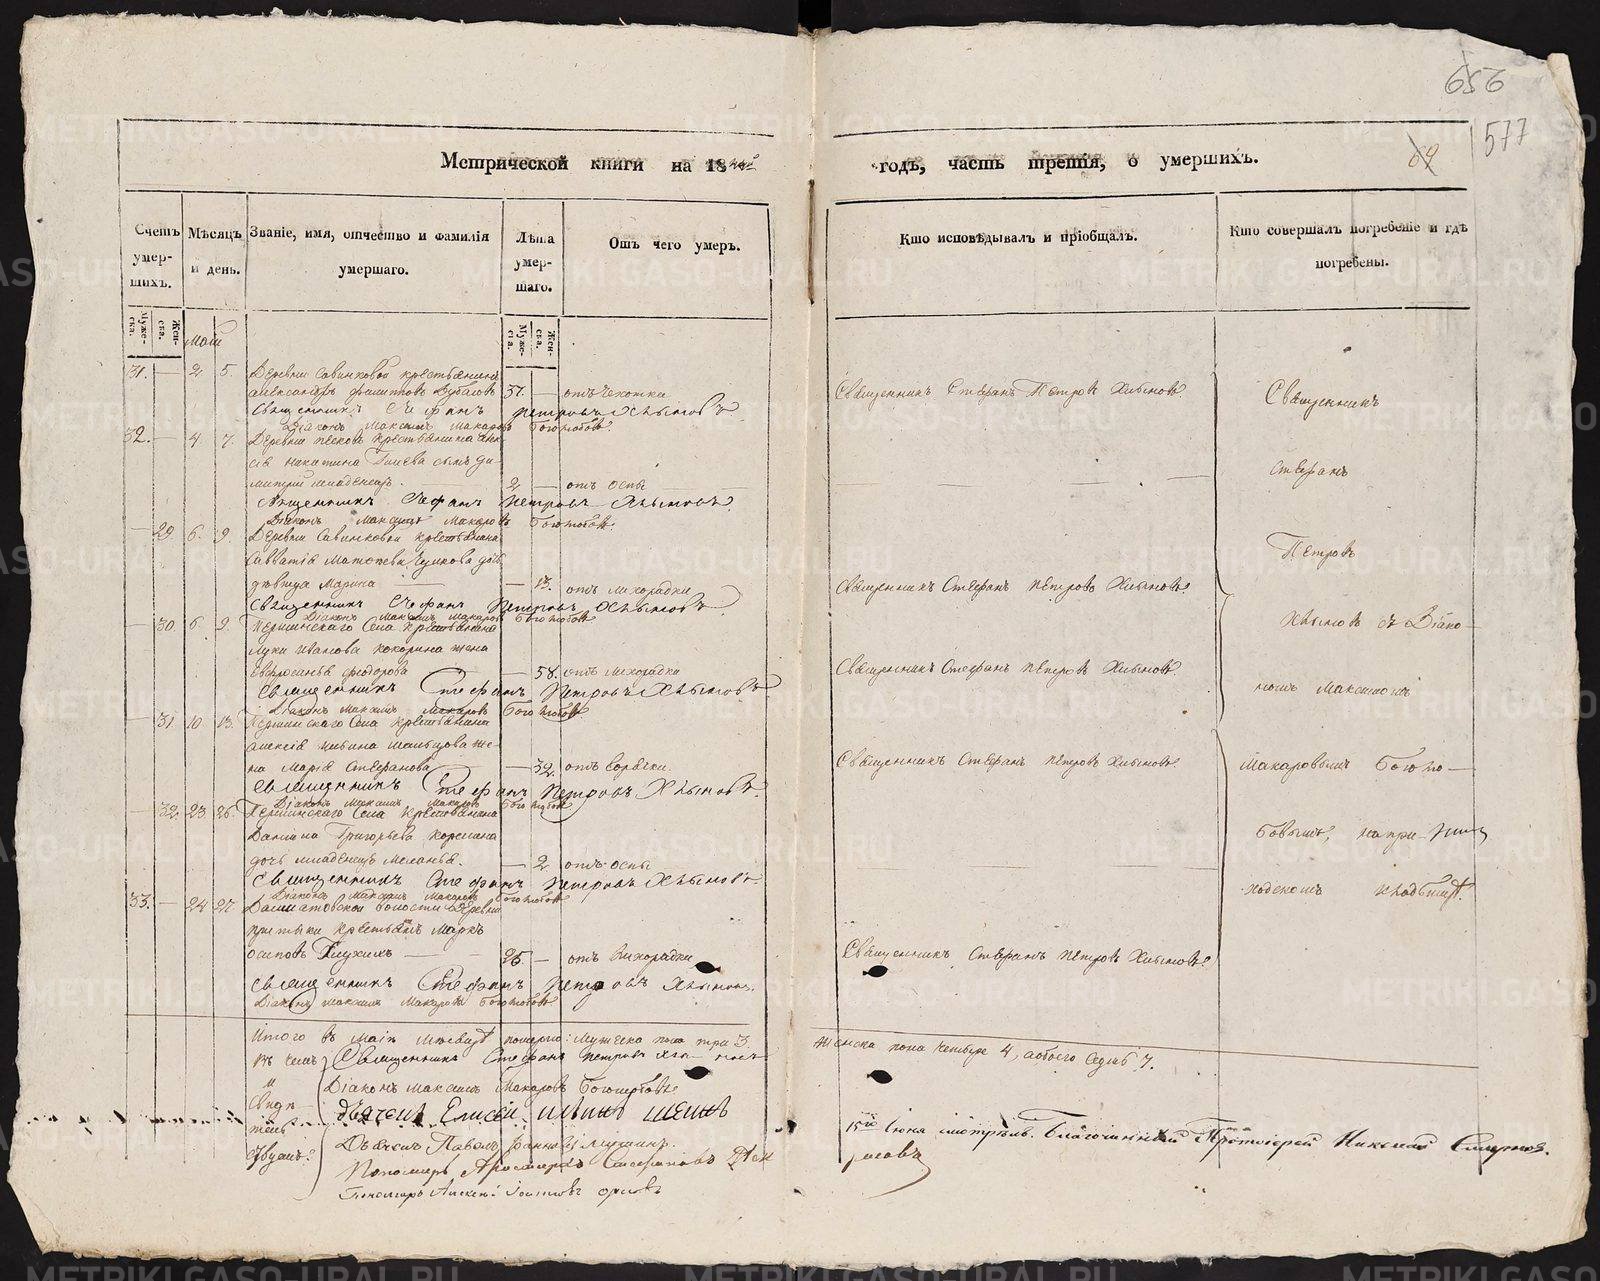 656
577
Метрической книги на 18
годъ, часть третія, о умершихъ.
69
Счетъ умер-шихъ.
Мѣсяцъ и день.
Званіе, имя, отчество и фамилія умершаго.
Лѣта умер-шаго.
Отъ чего умеръ.
Кто исповѣдывалъ и пріобщалъ.
Кто совершалъ погребеніе и гдѣ погребены.
Муже-ска.
Жен-ска.
Муже-ска.
Жен-ска.
Май
31. — 2 5. Деревни Савинковой крестьянинъ
Александръ Филиповъ 37. — отъ чахотки
Священникъ Стефанъ Петровъ Хлыновъ
Священникъ Стефанъ Петровъ Хлыновъ
Діаконъ Максимъ Макаровъ Боголюбовъ
32. — 4 7. Деревни крестьянина
Никитина сынъ Ди-
митрій младенецъ 2 — отъ оспы
Священникъ Стефанъ Петровъ Хлыновъ
Діаконъ Максимъ Макаровъ Боголюбовъ
— 29 6. 9. Деревни Савинковой крестьянина
Савватія дочь
дѣвица Марина — 13. отъ лихорадки
Священникъ Стефанъ Петровъ Хлыновъ
Священникъ Стефанъ Петровъ Хлыновъ
Діаконъ Максимъ Макаровъ Боголюбовъ
— 30. 6. 9. Першинскаго Села крестьянина
Луки Иванова Кокорина жена
Евфросинья Федорова — 58. отъ лихорадки
Священникъ Стефанъ Петровъ Хлыновъ
Священникъ Стефанъ Петровъ Хлыновъ
Діаконъ Максимъ Макаровъ Боголюбовъ
— 31. 10. 13. Першинскаго Села крестьянина
Алексія Мальцова же-
на Марія Стефанова — 39. отъ горячки
Священникъ Стефанъ Петровъ Хлыновъ
Священникъ Стефанъ Петровъ Хлыновъ
Діаконъ Максимъ Макаровъ Боголюбовъ
— 32. 23. 26. Першинскаго Села крестьянина
Данила Григорьева
дочь младенецъ Меланья. — 2 отъ оспы
Священникъ Стефанъ Петровъ Хлыновъ
Діаконъ Максимъ Макаровъ Боголюбовъ
33. — 24 27. Далматовской волости деревни
крестьянинъ Марко
Осиповъ Глухихъ — 25. — отъ лихорадки
Священникъ Стефанъ Петровъ Хлыновъ
Священникъ Стефанъ Петровъ Хлыновъ
Діаконъ Максимъ Макаровъ Боголюбовъ
Священникъ
Стефанъ
Петровъ
Хлыновъ съ Діако-
номъ Максимомъ
Макаровымъ Боголю-
бовымъ, на при-
ходскомъ кладбищѣ.
Итого въ Маіи мѣсяцѣ померло: Мужеска пола три 3.
Женска пола четыре 4, а обоего седмь 7.
Въ чемъ Священникъ Стефанъ Петровъ
и Діаконъ Максимъ Макаровъ Боголюбовъ
Дьячекъ Елисей
Дьячекъ Павелъ
Пономарь Стефановъ
Пономарь Орловъ
15го Іюня смотрѣлъ. Благочинный Протоіерей Николай